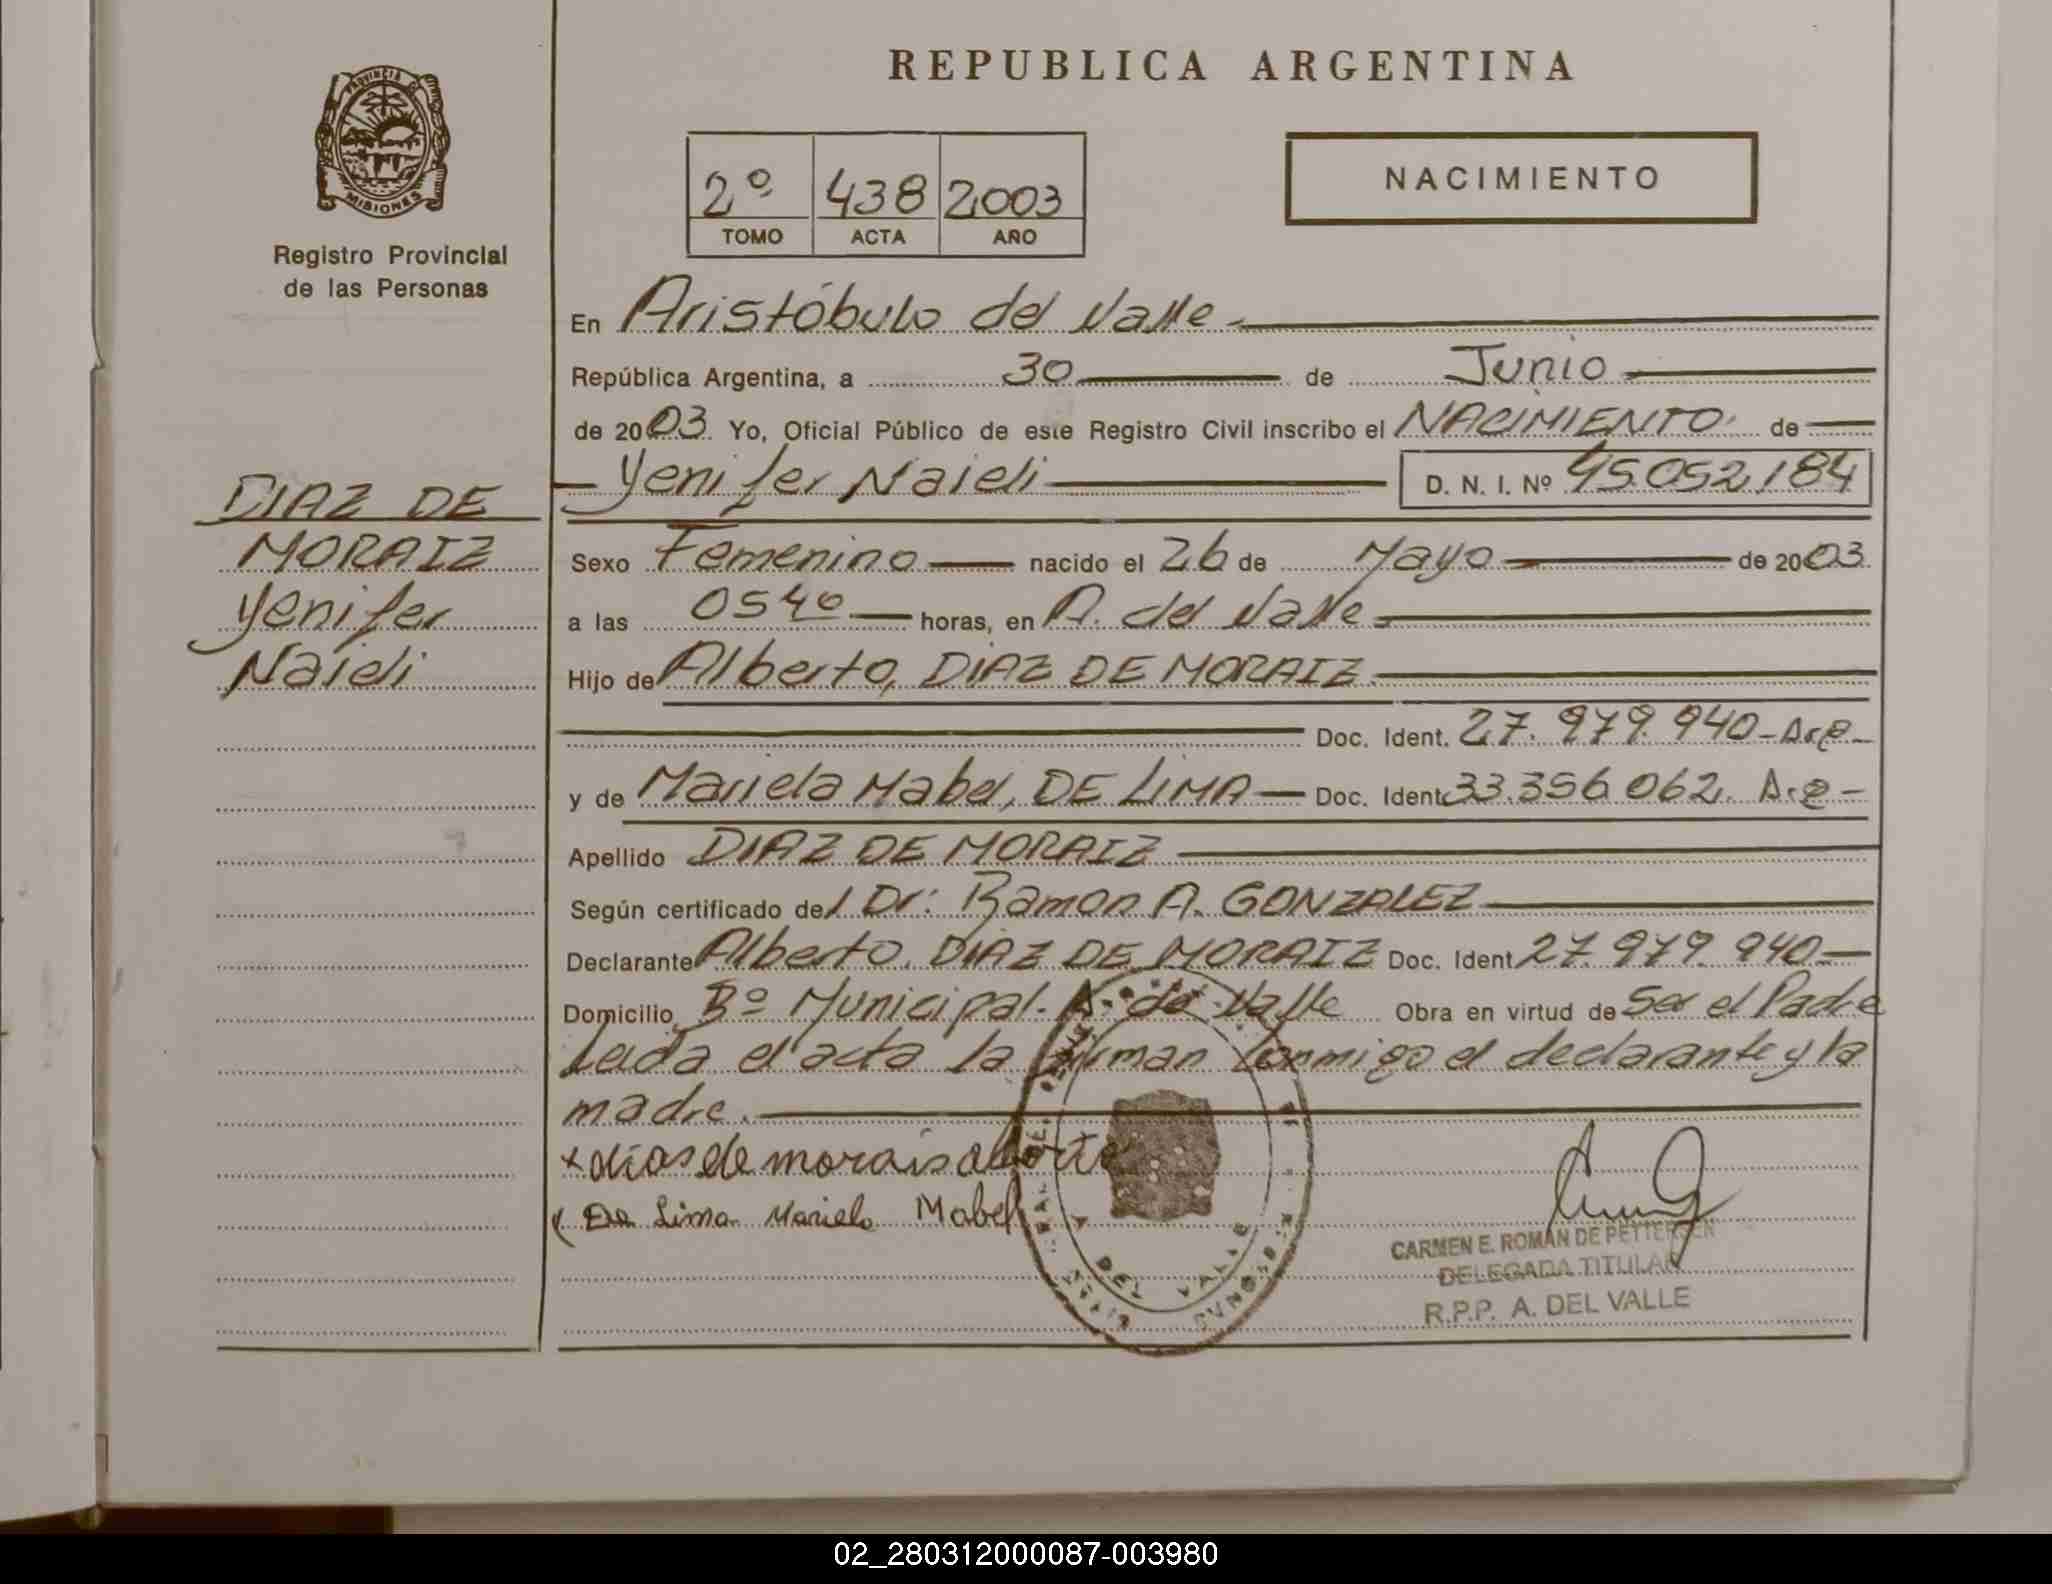 REPUBLICA ARGENTINA
PROVINCIA DE
MISIONES
Registro Provincial
de las Personas
2º 438 2003
TOMO ACTA AÑO
NACIMIENTO
En Aristóbulo del Valle
República Argentina, a 30 de Junio
de 2003. Yo, Oficial Público de este Registro Civil inscribo el NACIMIENTO de
Yenifer Naieli D. N. I. Nº 45.052.184
DIAZ DE
MORAIZ
Yenifer
Naieli
Sexo Femenino nacido el 26 de Mayo de 2003.
a las 0540 horas, en A. del Valle
Hijo de Alberto, DIAZ DE MORAIZ
Doc. Ident. 27.979.940 - Arg -
y de Mariela Mabel, DE LIMA Doc. Ident. 33.356.062. A.g -
Apellido DIAZ DE MORAIZ
Según certificado del Dr: Ramon A. GONZALEZ
Declarante Alberto, DIAZ DE MORAIZ Doc. Ident. 27.979.940
Domicilio Bº Municipal - A. del Valle Obra en virtud de Ser el Padre
Leida el acta la firman conmigo el declarante y la
madre.
x dias de morais alberto
x De Lima Mariela Mabel
DEL VALLE
CARMEN E. ROMAN DE PETTERSEN
DELEGADA TITULAR
R.P.P. A. DEL VALLE
02_280312000087-003980